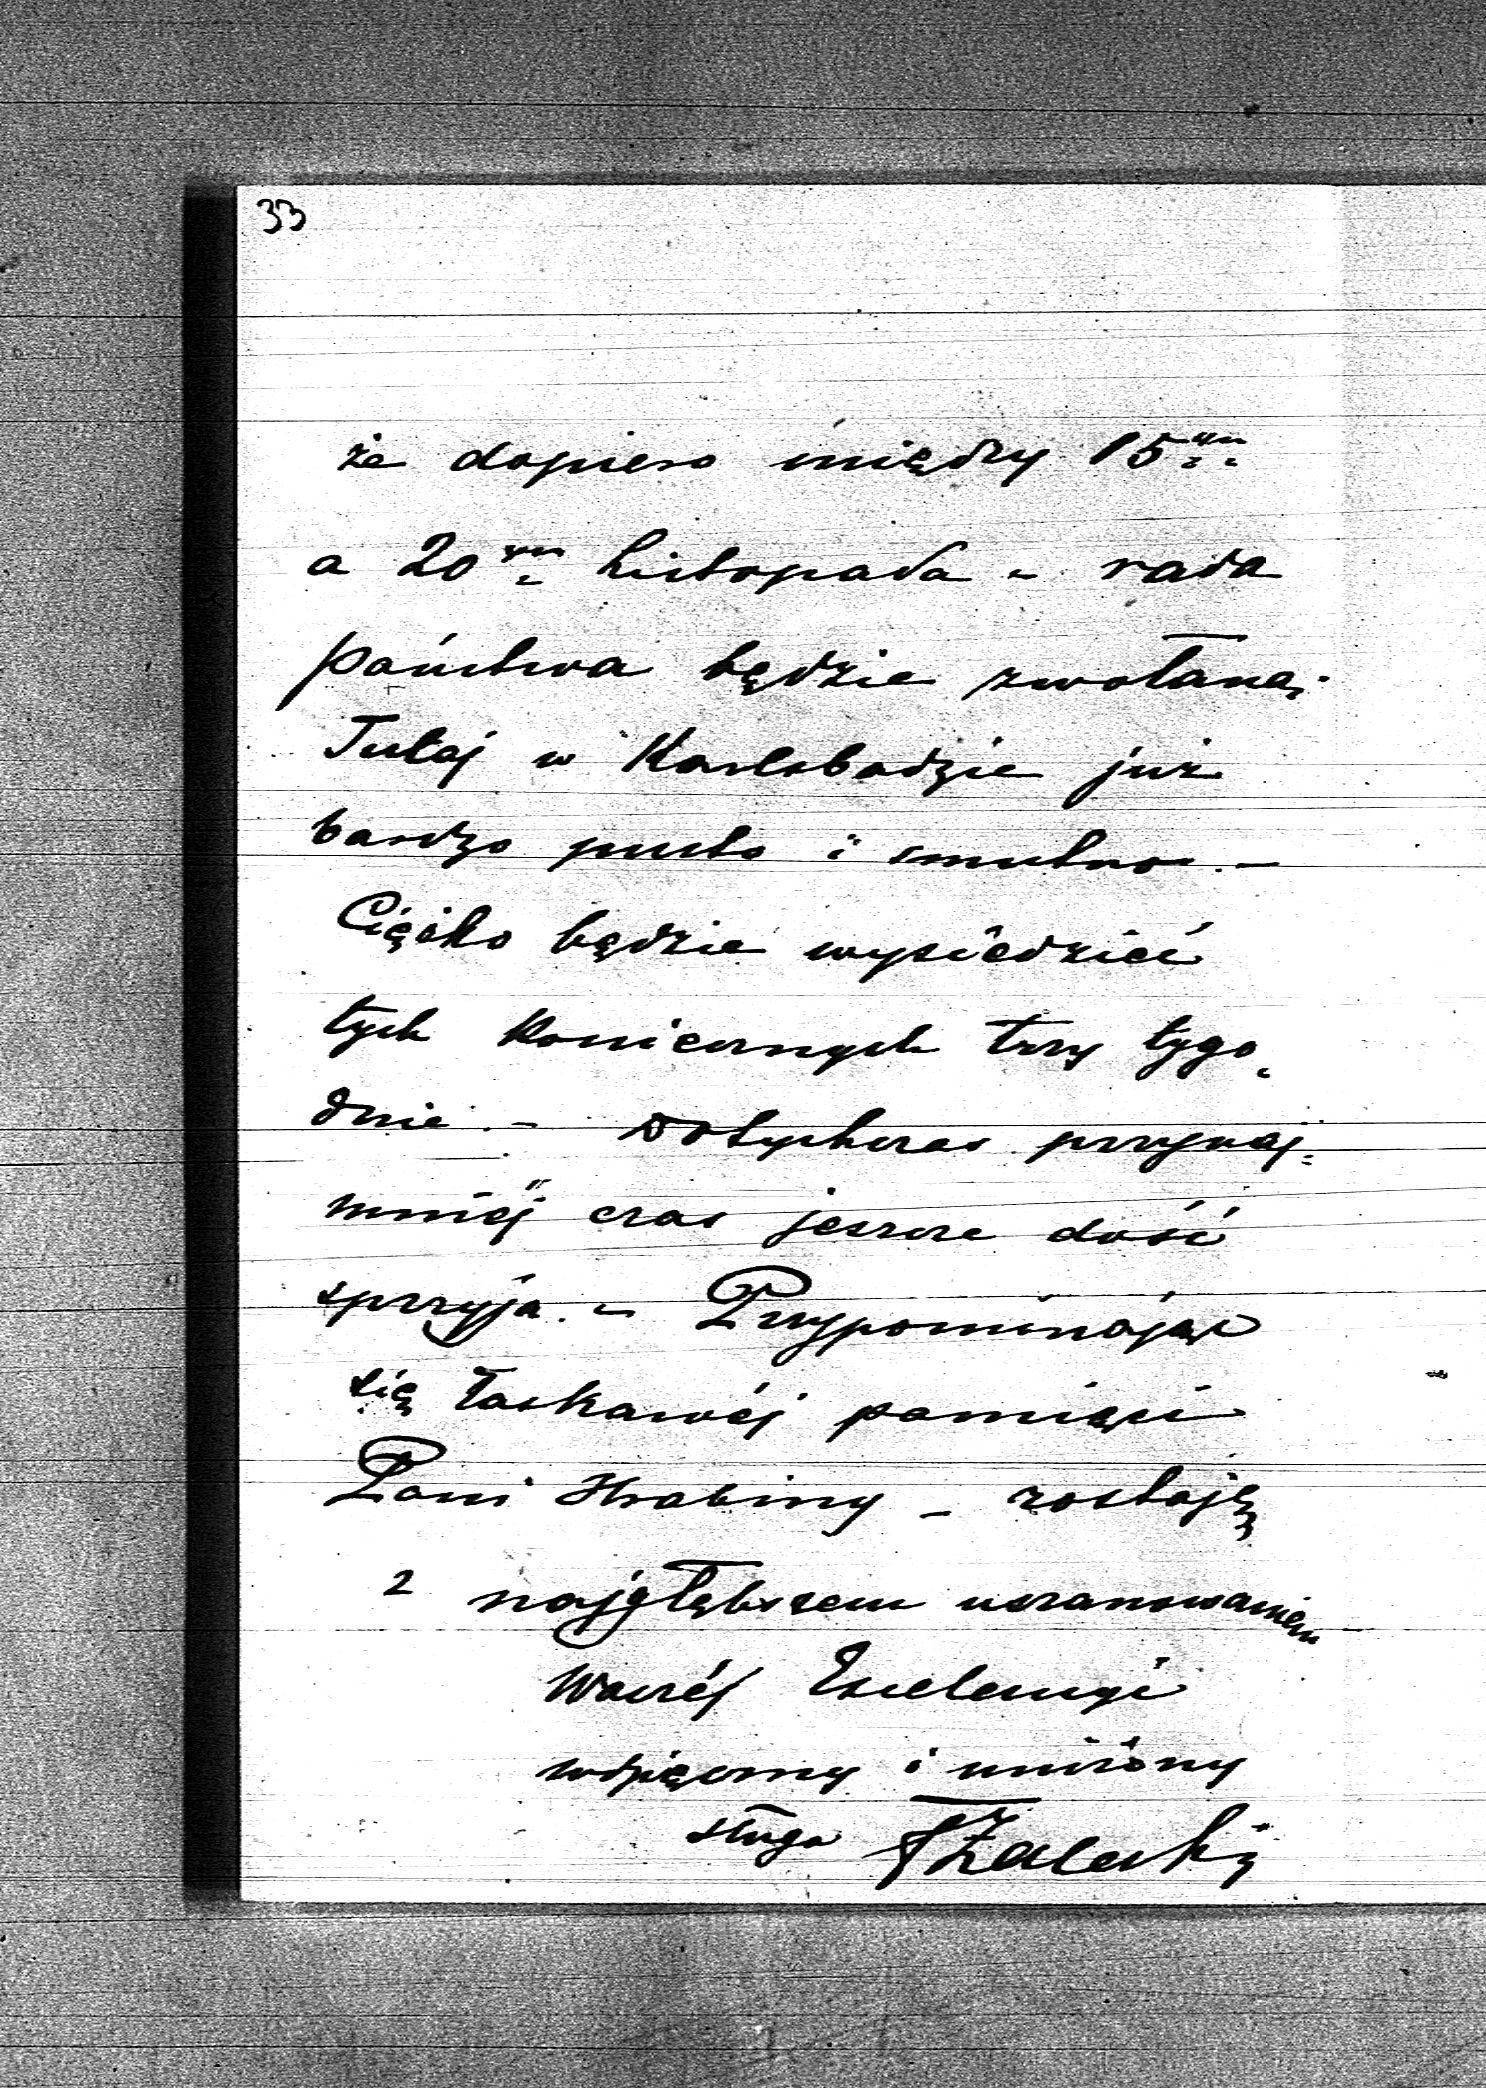 33
że dopiero między 15ym
a 20ym Listopada - rada
państwa będzie zwołaną.
Tutaj w Karlsbadzie już
bardzo pusto i smutno. -
Ciężko będzie wysiedzieć
tych koniecznych trzy tygo-
dnie. - Dotychczas przynaj-
mniéj czas jeszcze dość
sprzyja. - Przypominając
się łaskawéj pamięci
Pani Hrabiny - zostaję
z najgłębszem uszanowaniem
Waszéj Excelencyi
wdzięczny i uniżony
sługa FZaleski